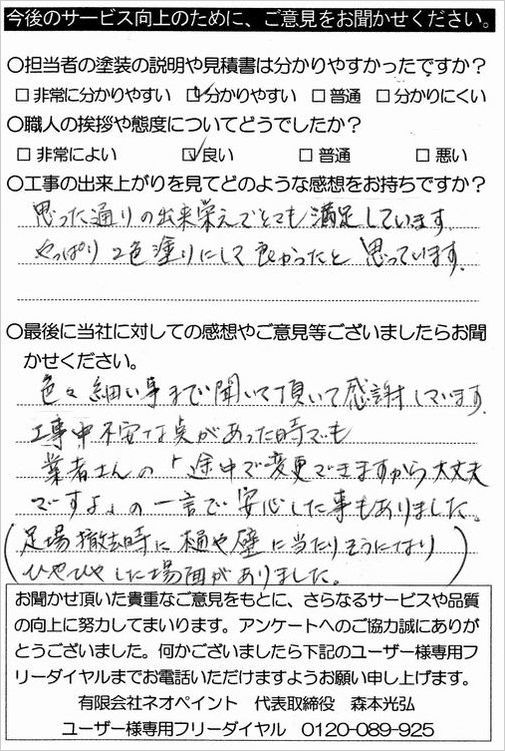 今後のサービス向上のために、ご意見をお聞かせください。
○担当者の塗装の説明や見積書は分かりやすかったですか？
□ 非常に分かりやすい ☑ 分かりやすい □ 普通 □ 分かりにくい
○職人の挨拶や態度についてどうでしたか？
□ 非常によい ☑ 良い □ 普通 □ 悪い
○工事の出来上がりを見てどのような感想をお持ちですか？
思った通りの出来栄えでとても満足しています。
やっぱり2色塗りにして良かったと思っています。
○最後に当社に対しての感想やご意見等ございましたらお聞
かせください。
色々細い事まで聞いて頂いて感謝しています。
工事中不安な点があった時でも
業者さんの「途中で変更できますから大丈夫
ですよ」の一言で安心した事もありました。
(足場撤去時に樋や壁に当たりそうになり
ひやひやした場面がありました。)
お聞かせ頂いた貴重なご意見をもとに、さらなるサービスや品質
の向上に努力してまいります。アンケートへのご協力誠にありが
とうございました。何かございましたら下記のユーザー様専用フ
リーダイヤルまでお電話いただけますようお願い申し上げます。
有限会社ネオペイント 代表取締役 森本光弘
ユーザー様専用フリーダイヤル 0120-089-925